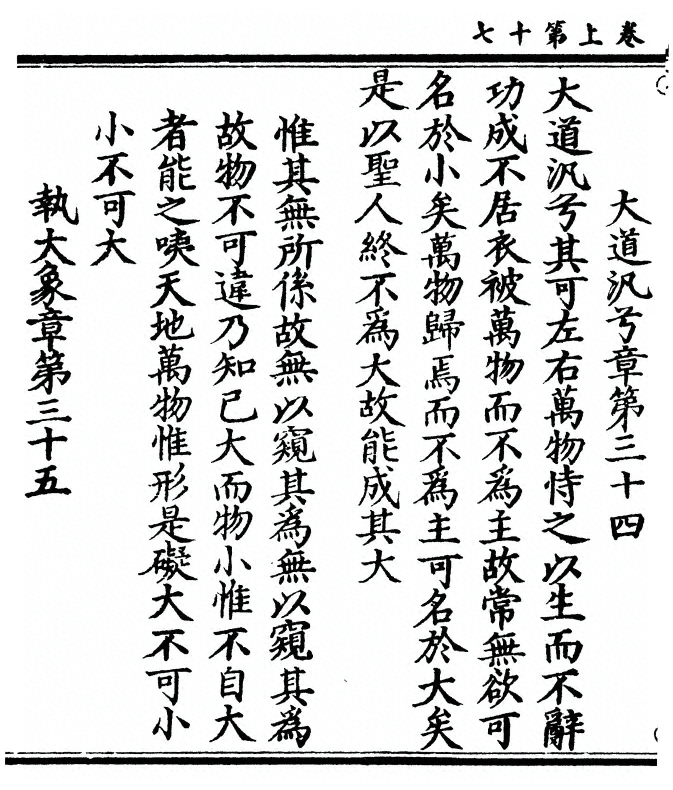 卷上第十七
大道汎兮章第三十四
大道汎兮其可左右萬物恃之以生而不辭
功成不居衣被萬物而不爲主故常無欲可
名於小矣萬物歸焉而不爲主可名於大矣
是以聖人終不爲大故能成其大
惟其無所係故無以窺其爲無以窺其爲
故物不可違乃知已大而物小惟不自大
者能之咦天地萬物惟形是礙大不可小
小不可大
執大象章第三十五